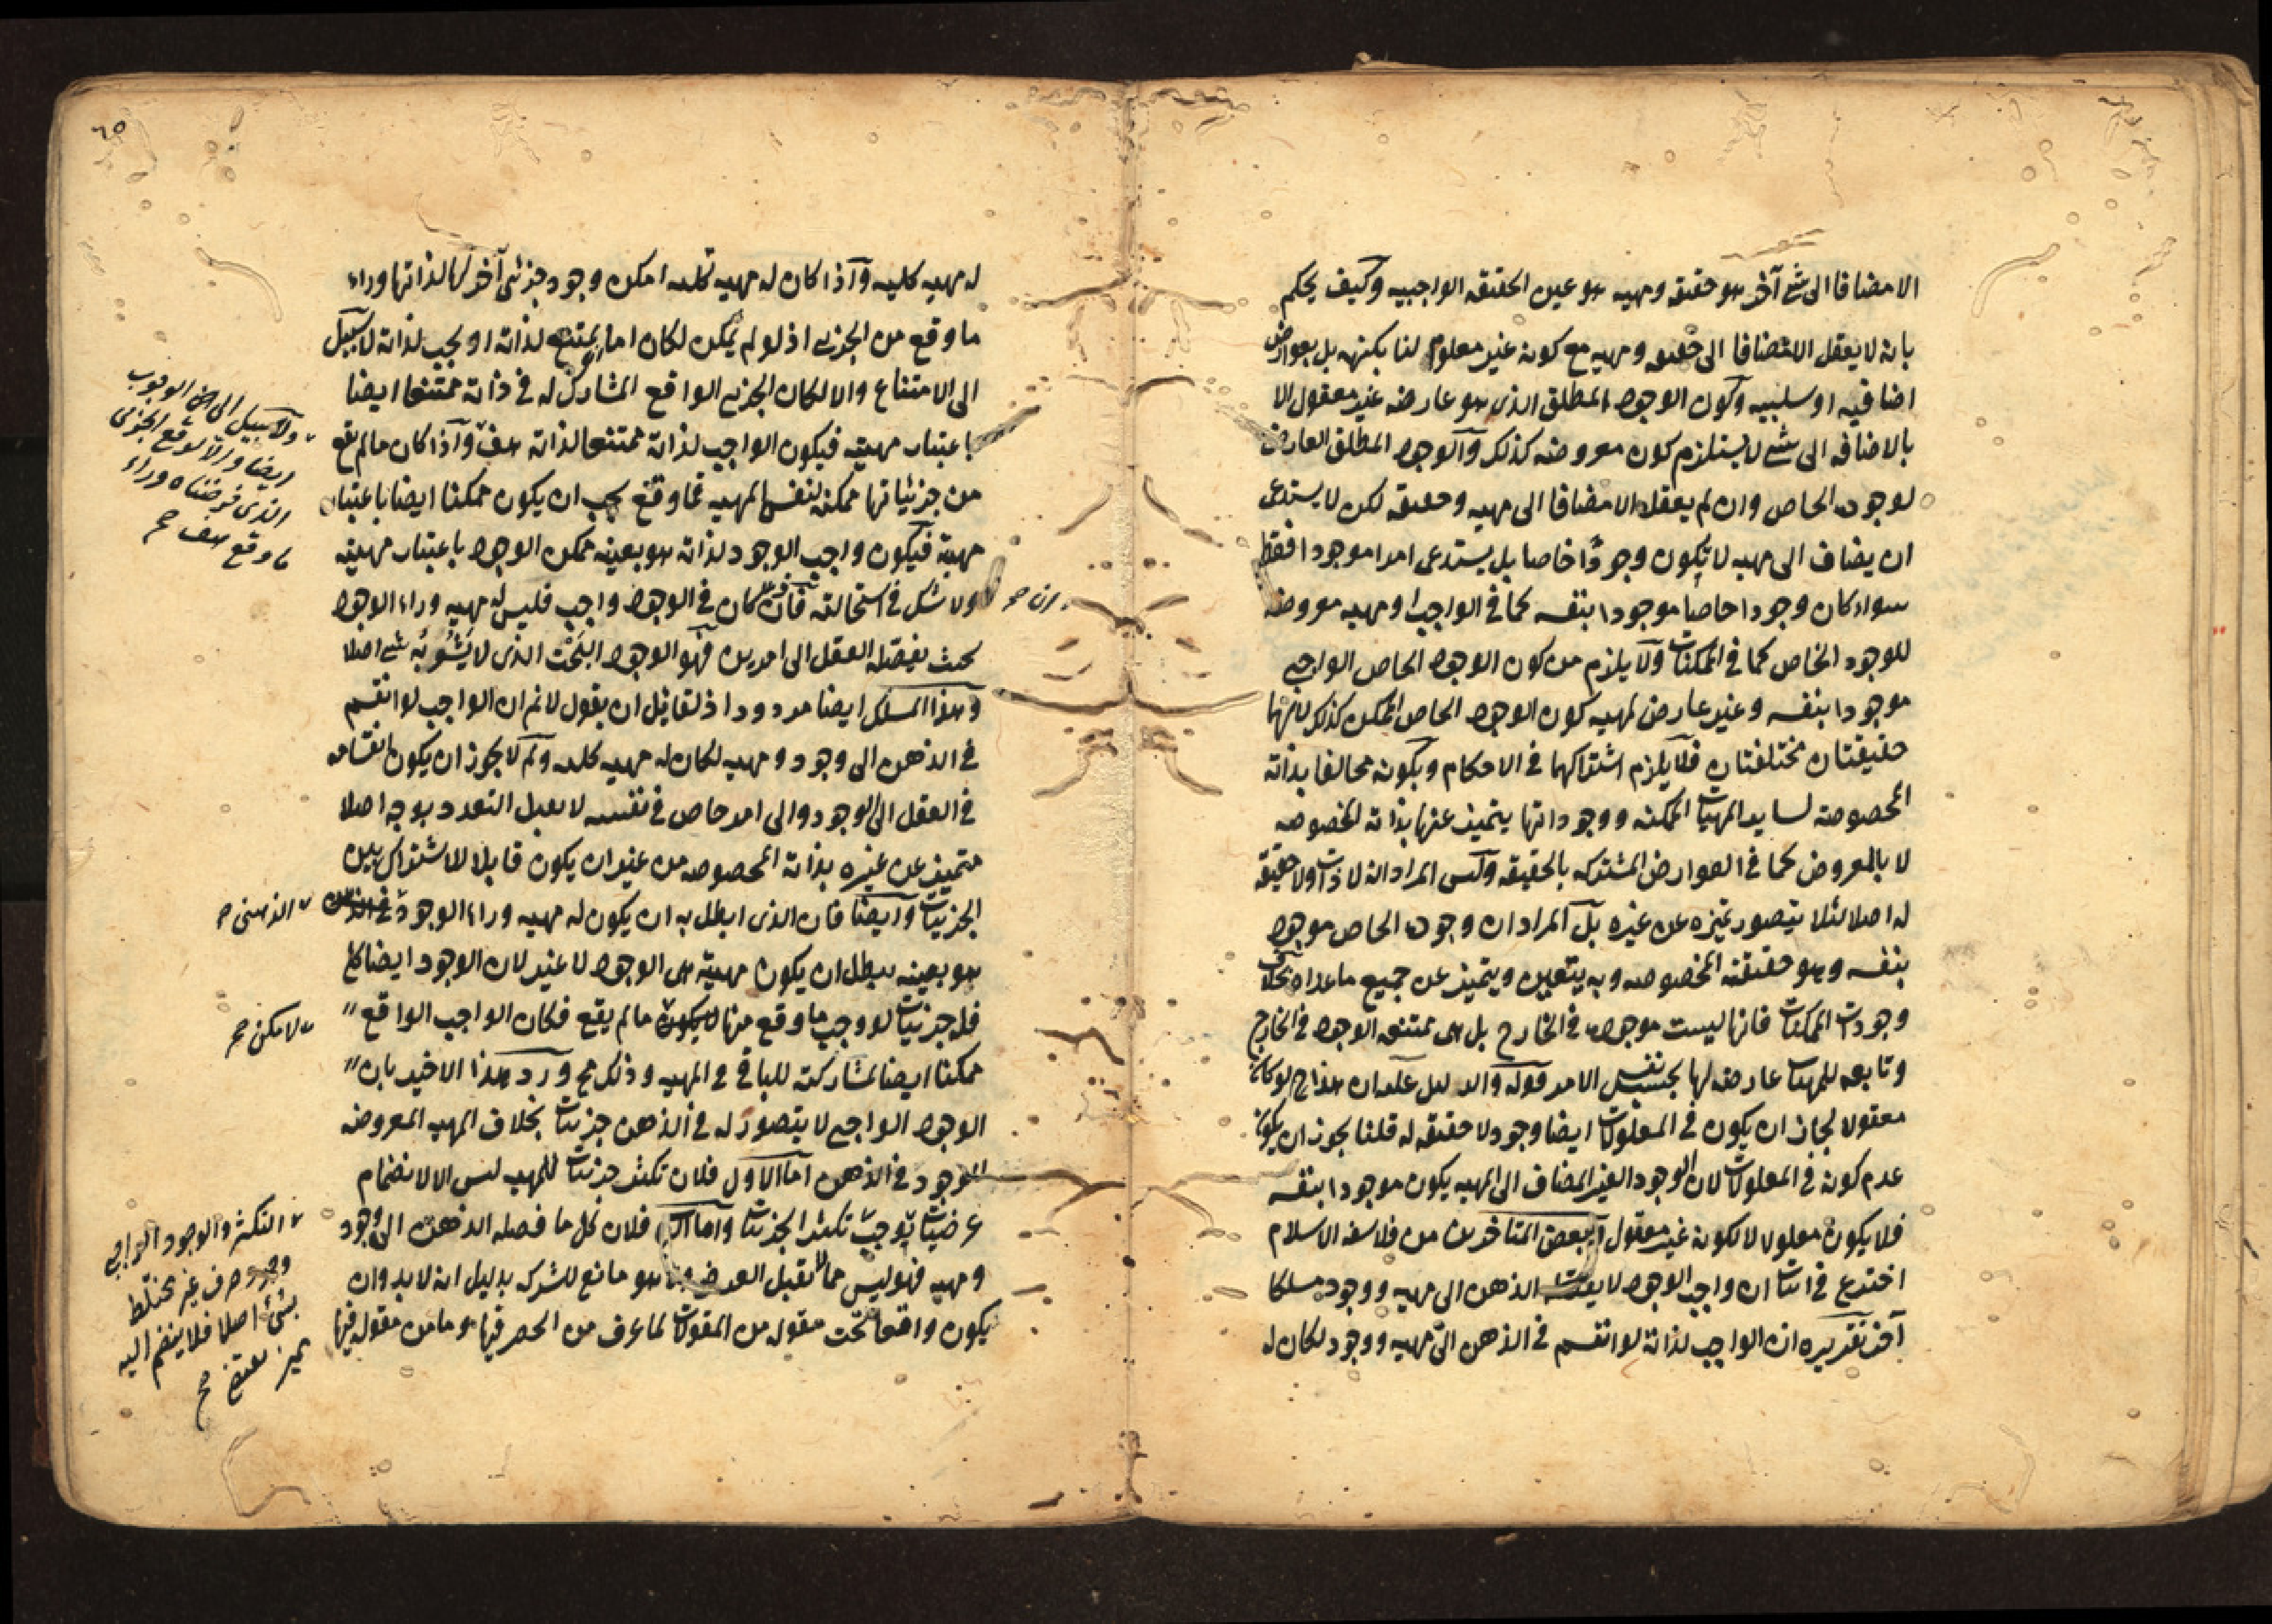 الا مضافا الى شئ آخر هو حقيقة ومهيه هو عين الحقيقه الواجبيه وكيف يحكم
بانه لا يعقل الا مضافا الى حقيقه ومهيه مع كونه غير معلوم لنا بكنهه بل بعوارض
اضافيه او سلبيه وكون الوجود المطلق الذى هو عارضه غير معقول الا
بالاضافه الى شئ لا يستلزم كون معروضه كذلك والوجود المطلق العارض
لوجوده الخاص وان لم يعقل الا مضافا الى مهيه وحقيقه لكن لا يستدعى
ان يضاف الى مهيه لا يكون وجودا خاصا بل يستدعى امرا موجودا فقط
سواء كان وجودا خاصا موجودا بنفسه كما فى الواجب او مهيه معروضه
للوجود الخاص كما فى الممكنات ولا يلزم من كون الوجود الخاص الواجبى
موجودا بنفسه وغير عارض لمهيه كون الوجود الخاص الممكن كذلك لانهما
حقيقتان مختلفتان فلا يلزم اشتراكهما فى الاحكام وبكونه مخالفا بذاته
المخصوصه لساير المهيات الممكنه ووجوداتها يتميز عنها بذاته المخصوصه
لا بالعروض كما فى العوارض المشتركه بالحقيقه وليس المراد انه لا ذات ولا حقيقة
له اصلا لئلا يتصور تميزه عن غيره بل المراد ان وجوده الخاص موجود
بنفسه وهو حقيقته المخصوصه وبه يتعين ويتميز عن جميع ماعداه بخلاف
وجودات الممكنات فانها ليست موجوده فى الخارج بل هى ممتنعه الوجود فى الخارج
وتابعه للمهيات عارضه لها بحسب نفس الامر قوله والدليل عليه ان هذا لو كان
معقولا لجاز ان يكون فى المعلولات ايضا وجود لا حقيقه له قلنا يجوز ان يكون
عدم كونه فى المعلولات لان الوجود الغير المضاف الى المهيه يكون موجودا بنفسه
فلا يكون معلولا لا لكونه غير معقول وبعض المتاخرين من فلاسفه الاسلام
اخترع فى اثبات ان واجب الوجود لا الذهن الى مهيه ووجود مسلكا
آخر تقريره ان الواجب لذاته لو انقسم فى الذهن الى مهيه ووجود لكان له
٦٥
له مهيه كليه واذا كان له مهيه كليه امكن وجود جزئى آخر لها لذاتها وراء
ما وقع من الجزئى اذ لو لم يمكن لكان اما يمتنع لذاته او يجب لذاته لا سبيل
الى الامتناع والا لكان الجزئى الواقع المشارك له فى ذاته ممتنعا ايضا
باعتبار مهيته فيكون الواجب لذاته ممتنعا لذاته هف واذا كان مالم يقع
من جزئياتها ممكنه لنفس المهيه فما وقع يجب ان يكون ممكنا ايضا باعتبار
مهيته فيكون واجب الوجود لذاته هو بعينه ممكن الوجود باعتبار مهيته
ولا شك فى استحالته فان كان فى الوجود واجب فليس له مهيه وراء الوجود
بحيث يفصله العقل الى امرين فهو الوجود البحت الذى لا يشوبه شئ اصلا
وهذا المسلك ايضا مردود اذ لقايل ان يقول لا نم ان الواجب لو انقسم
فى الذهن الى وجود ومهيه لكان له مهيه كليه ولم لا يجوز ان يكون انقسامه
فى العقل الى الوجود والى امر خاص فى نفسه لا يقبل التعدد بوجه اصلا
متميز عن غيره بذاته المخصوصه من غير ان يكون قابلا للاشتراك بين
الجزئيات وايضا فان الذى ابطل به ان يكون له مهيه وراء الوجود فى الذهن
هو بعينه يبطل ان يكون مهيته هى الوجود لا غير لان الوجود ايضا كلى
فله جزئيات لو وجب ما وقع منها مالم يقع فكان الواجب الواقع
ممكنا ايضا لمشاركته للباقى فى المهيه وذلك مح ورد هذا الاخير بان
الوجود الواجبى لا يتصور له فى الذهن جزئيات بخلاف المهيه المعروضه
للوجود فى الذهن اما الاول فلان تكثر جزئيات المهيه ليس الا لانضمام
عرضيات توجب تكثر الجزئيات واما فلان كل ما فصله الذهن الى وجود
ومهيه فهو ليس مما هو مانع للشركه بدليل انه لا بد وان
يكون واقعا تحت مقوله من المقولات لما عرف من الحصر فيها وما من مقوله فيها
ولا سبيل الى الوجوب
ايضا والا لوقع الجزئى
الذى فرضناه وراء
ما وقع هف صح
الذهنى صح
لا مكن صح
التكثر والوجود الواجبى
وجود صرف غير مختلط
بشئ اصلا فلا ينضم اليه